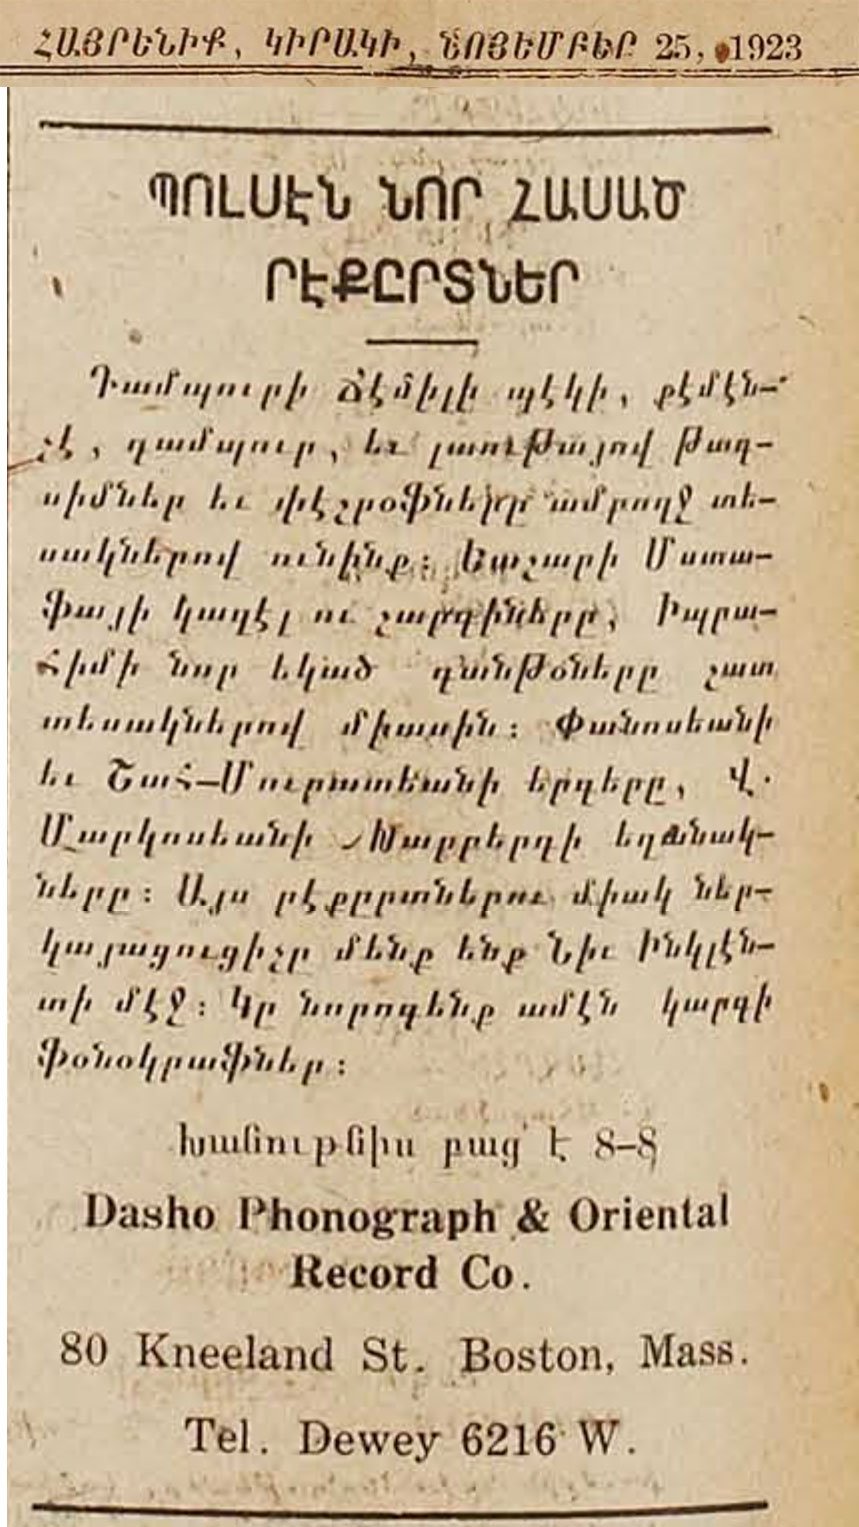 ՀԱՅՐԵՆԻՔ, ԿԻՐԱԿԻ, ՆՈՅԵՄԲԵՐ 25, 1923
ՊՈԼՍԷՆ ՆՈՐ ՀԱՍԱԾ
ՐԷՔԸՐՏՆԵՐ
Դամպուրի Ճէմիլի պէկի, քէմէն-
չէ, դամպուր, եւ լաութայով թաղ-
սիմներ եւ փէշրօֆները ամբողջ տե-
սակներով ունինք։ Եաշարի Մստա-
ֆայի կաղէլ ու շարգիները, Իպրա-
հիմի նոր եկած գանթօները շատ
տեսակներով միասին։ Փանոսեանի
եւ Շահ-Մուրատեանի երգերը, Վ.
Մարկոսեանի Խարբերդի եղանակ-
ները։ Այս րէքըրտներու միակ ներ-
կայացուցիչը մենք ենք Նիւ Ինկլէն-
տի մէջ։ Կը նորոգենք ամէն կարգի
Ֆօնօկրաֆներ։
Խանութնիս բաց է 8-8
Dasho Phonograph & Oriental
Record Co.
80 Kneeland St. Boston, Mass.
Tel. Dewey 6216 W.